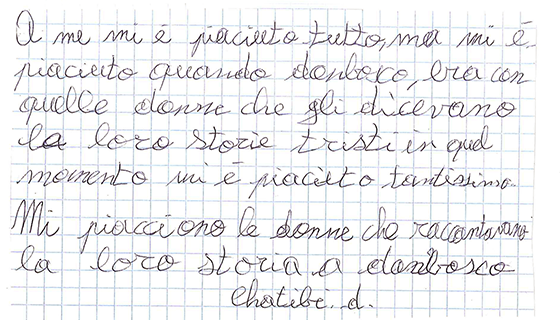 A me mi è piaciuto tutto, ma mi è
piaciuto quando donbosco, era con
quelle donne che gli dicevano
la loro storie tristi in quel
momento mi è piaciuto tantissimo.
Mi piacciono le donne che raccontavano
la loro storia a donbosco
Chatibi. d.